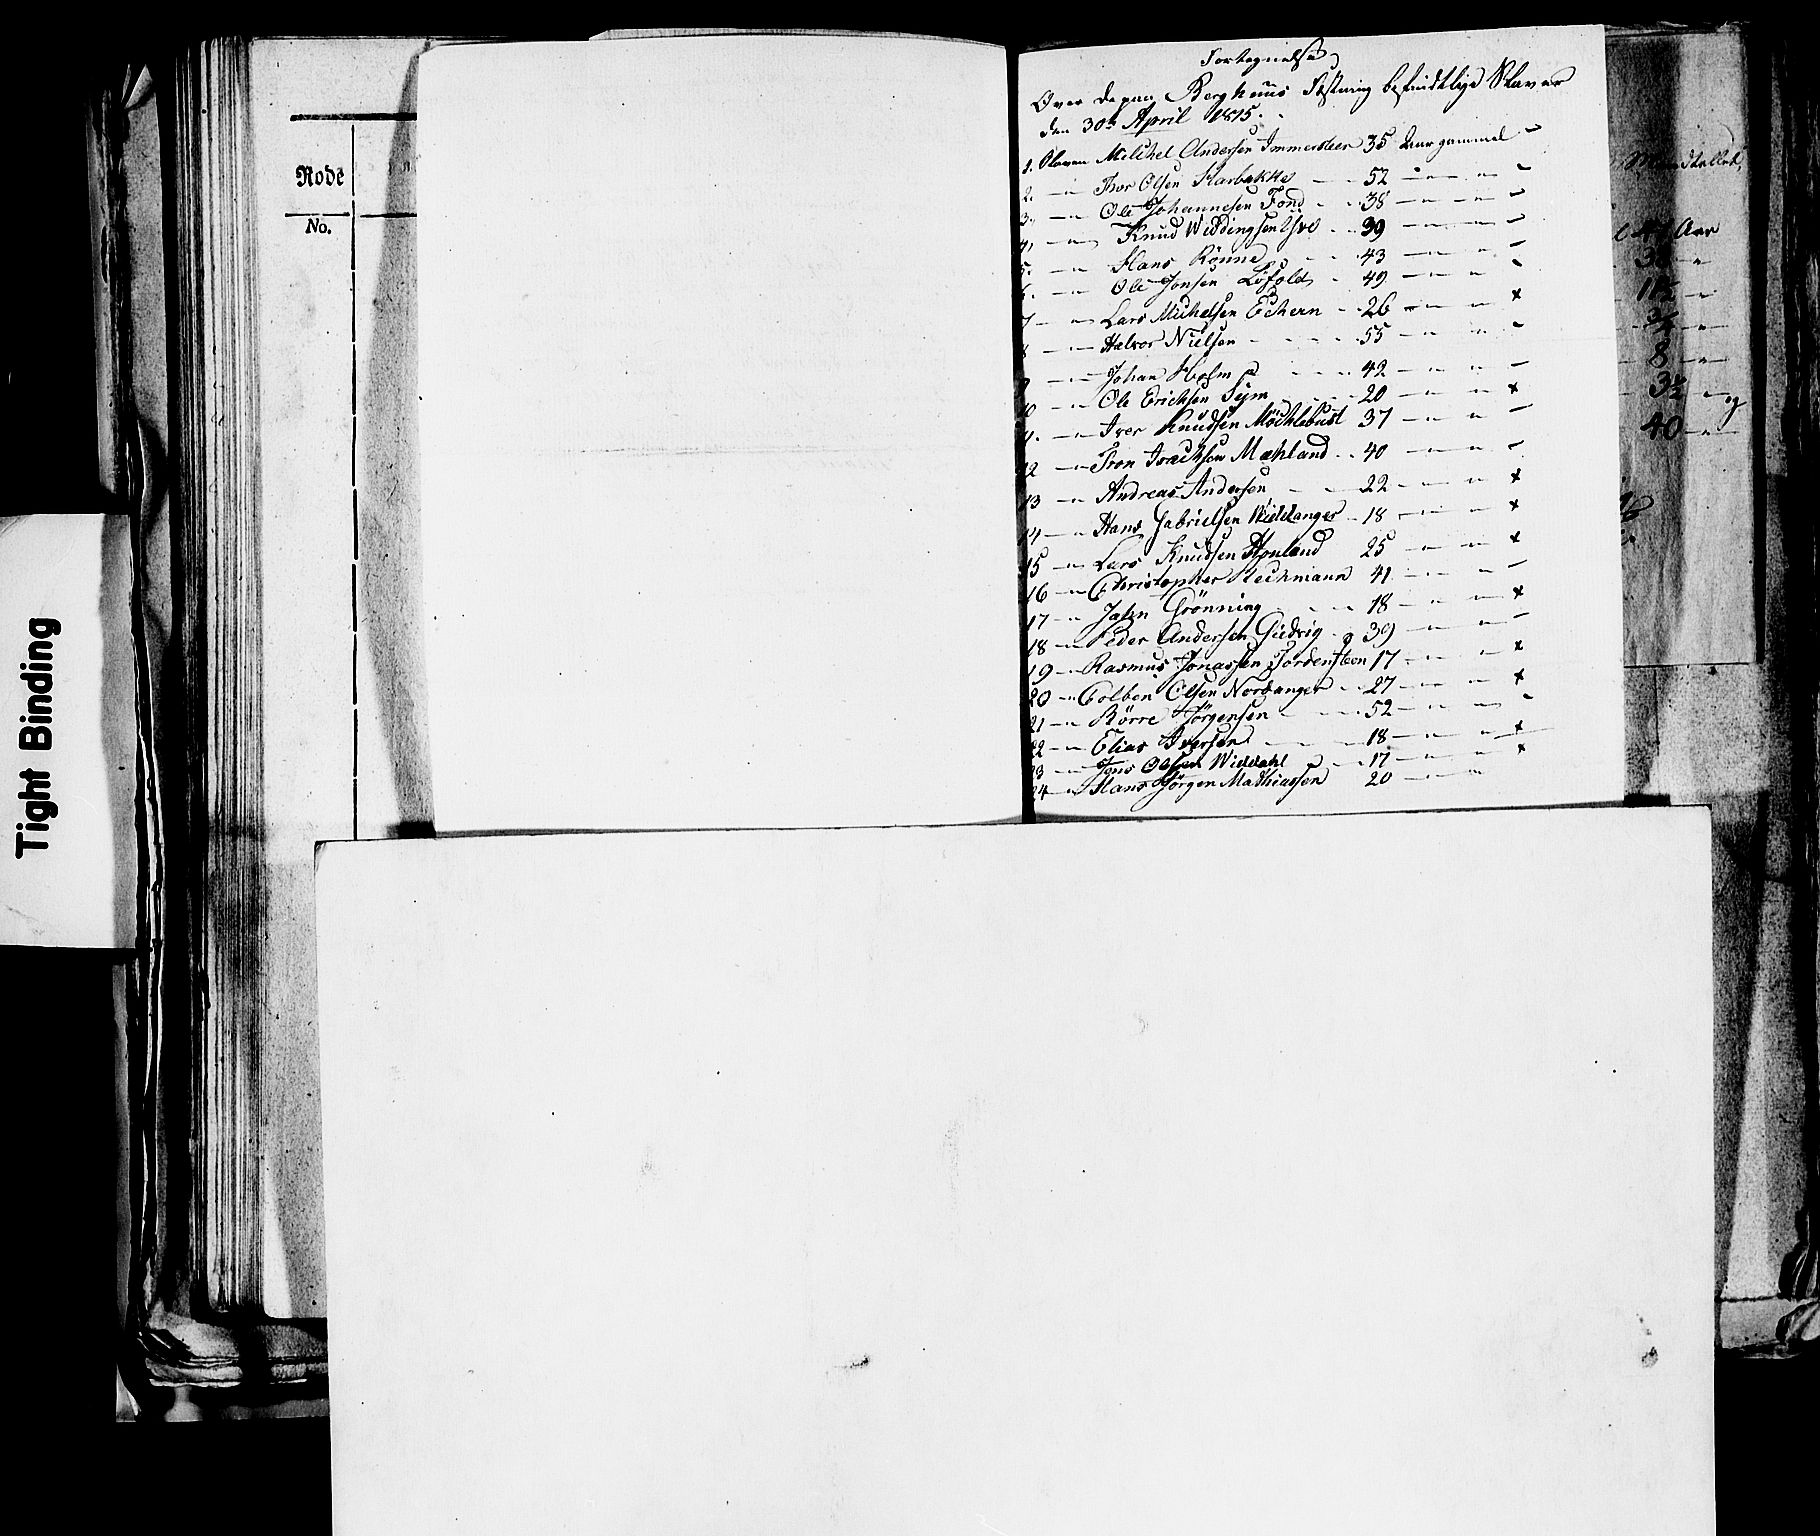 Tight Binding
Rode
No.
Fortegnelse
Over de paa Berghuus Fæstning befindtlige Slaver
den 30te April 1815.
1. Slaven Michel Andersen Immersteen 35 Aar gammel -
2. -"- Thor Olsen Harbakke - - 52 -"- -"- -
3. -"- Ole Johannesen Fond - - 38 -"- -"- -
4, -"- Knud Widdingsen - - 39 -"- -"- -
5. -"- Hans Rönne - - 43 -"- -"- -
6. -"- Ole Jonsen Löfold - 49 -"- -"- -
7 -"- Lars Michelsen Echern - 26 -"- -"- x
8 -"- Halvor Nielsen - - - 55 -"- -"- -
9 -"- Johan Holm - - - 42 -"- -"- -
10 -"- Ole Erichsen Seim - - 20 -"- -"- x
11. -"- Iver Knudsen Möchlebust 37 -"- -"- -
12 -"- Tron Mæhland - - 40 -"- -"- -
13 -"- Andreas Andersen - - 22 -"- -"- x
14 -"- Hans Gabrielsen - 18 -"- -"- x
15 -"- Lars Knudsen 25 -"- -"- x
16 -"- Christopher Rechmann 41 -"- -"- -
17 -"- Jahn Grönning - - - 18 -"- -"- x
18 -"- Peder Andersen Giedvig - 39 -"- -"- -
19 -"- Rasmus Jonassen Tordensteen 17 -"- -"- x
20 -"- Colben Olsen Nordanger - 27 -"- -"- x
21 -"- Börre Jörgensen - - - 52 -"- -"- -
22 -"- Elias Iversen - - - 18 -"- -"- x
23 -"- Jens Olsen Widdahl - - 17 -"- -"- x
24 -"- Hans Jörgen Mathiassen 20 -"- -"-
Aar
38 -"-
11½ -"-
8 -"-
3½ -"-
40 -"-